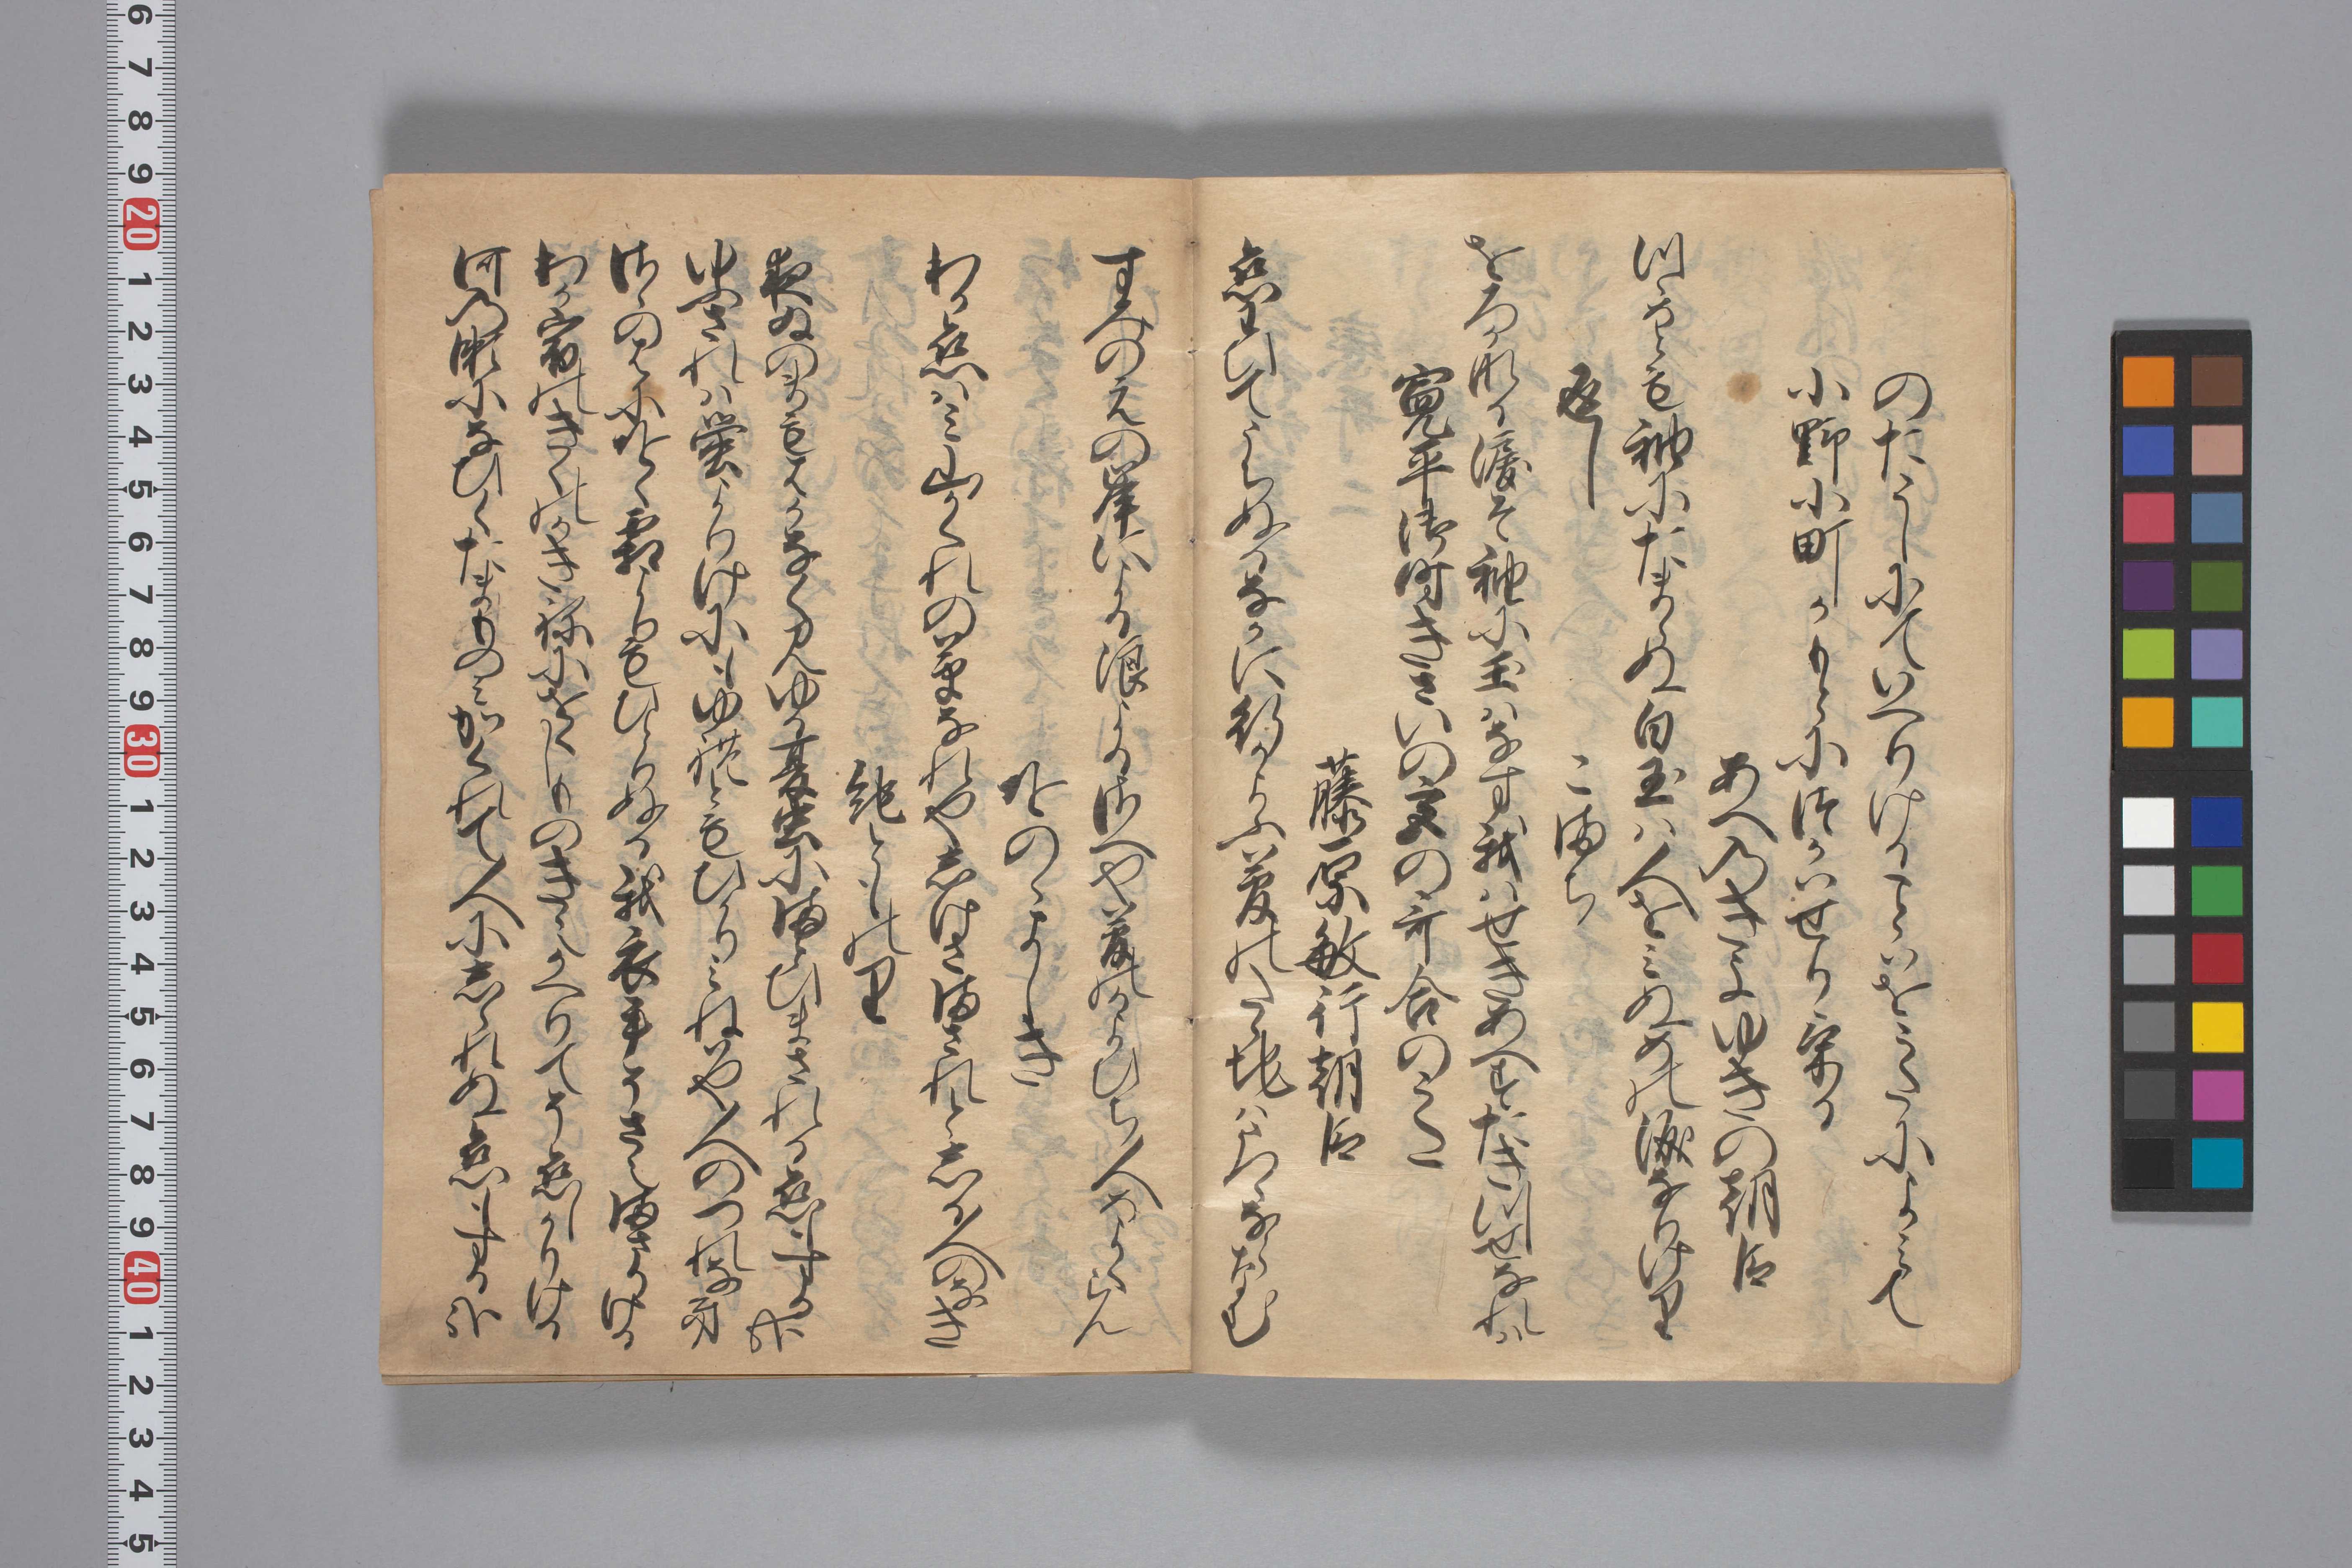 のたうしにていへりけることはをうたによみて
小野小町かもとにつかはせりける
あへのきよゆきの朝臣
つゝめとも袖にたまらぬ白玉は人をみぬめの涙なりけり
返し
こまち
をろかなる涙そ袖に玉はなす我はせきあへすたきつせなれは
寛平御時きさいの宮の哥合のうた
藤原敏行朝臣
恋わひてうちぬるなかに行かよふ夢のたゝちはうつゝならなむ
すみのえの岸による浪よるさへや夢のかよひち人めよくらん
をのゝよしき
わか恋はみ山かくれの草なれやしけさまされとしる人のなき
紀とものり
夜ゐのまもはかなくみゆる夏虫にまとひまされる恋もするかな
ゆふされは蛍よりけにもゆれともひかりみねはや人のつれなき
さゝのはにをく霜よりもひとりぬる我衣手そさえまさりける
わか宿のきくのかきねにをくしものきえかへりてそ恋しかりける
河の瀬になひくたまものみかくれて人にしられぬ恋もするかな